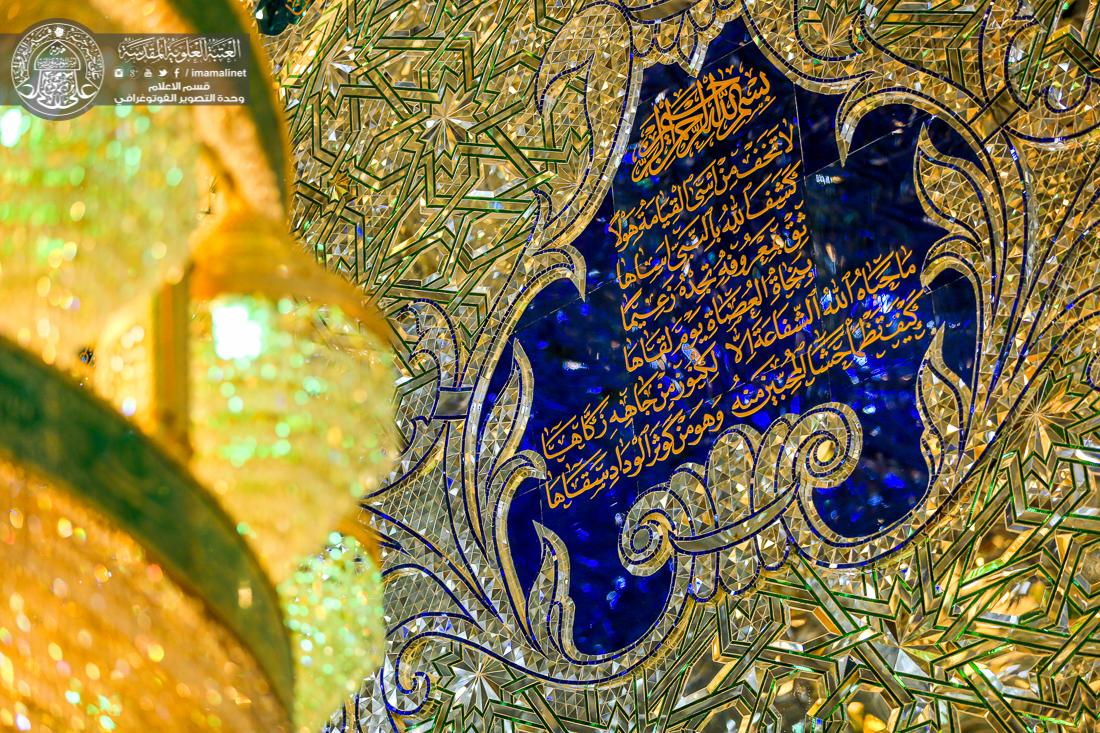 العتبة العلوية المقدسة
/ imamalinet
قسم الاعلام
وحدة التصوير الفوتوغرافي
بسم الله الرحمن الرحيم
لا تخف من أسى القيامة هولا
كشف الله بالنبي أساها
ثق بمعروفه تجده زعيما
بنجاة العصاة يوم لقاها
ما حباه الله الشفاعة إلا
لكنوز من جاهه زكاها
كيف تظما حشا المحبين منه
وهو من كوثر الوداد سقاها